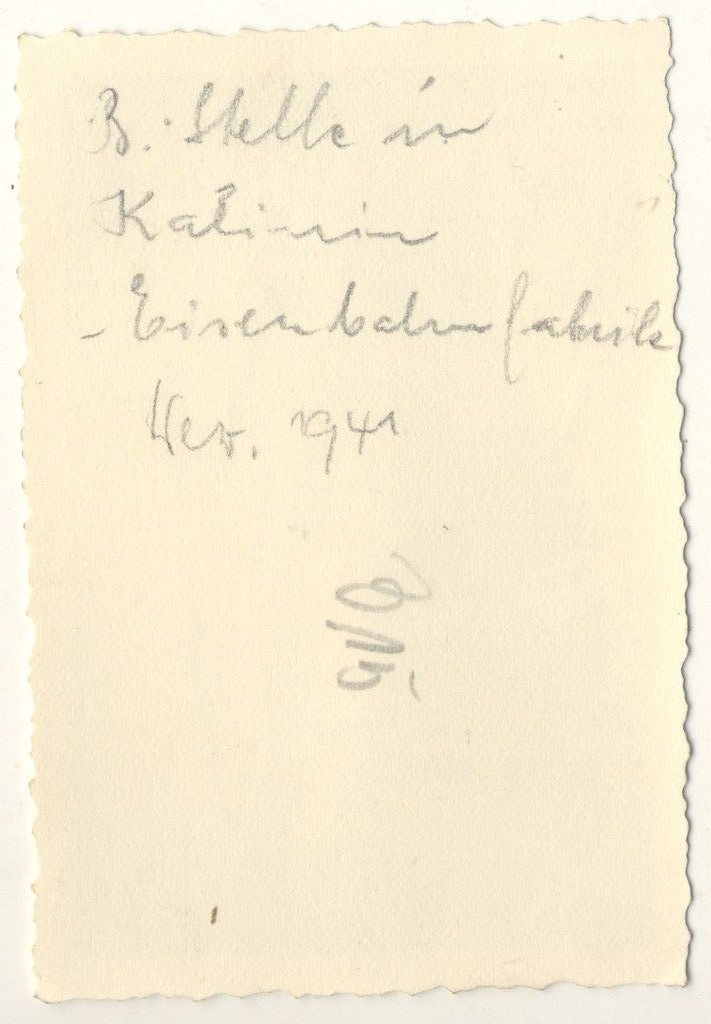 B.-Stelle in
Kalinin
- Eisenbahnfabrik
Nov. 1941